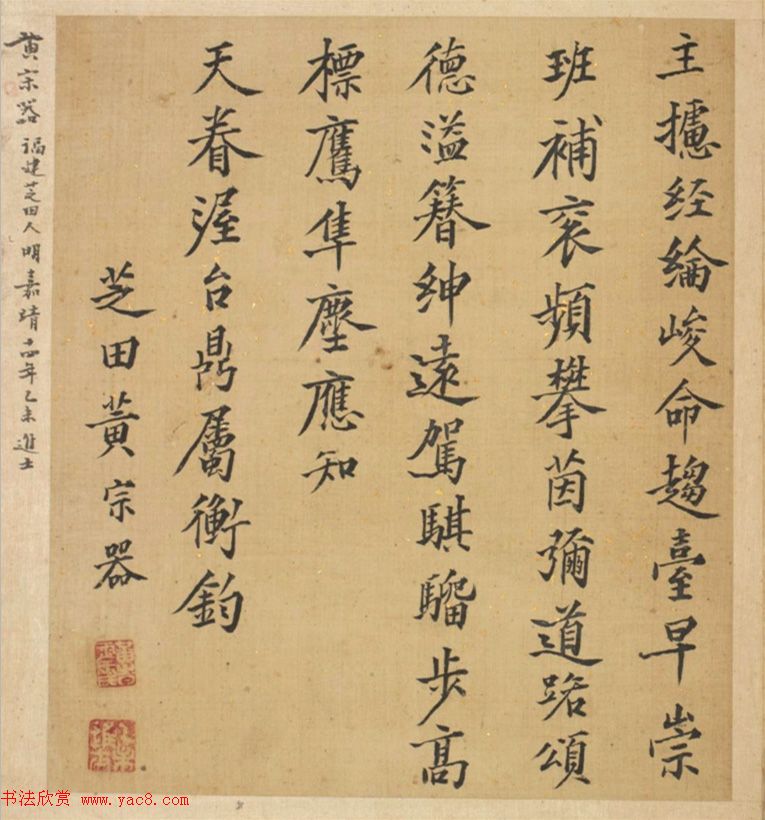 主攄经綸峻命趨臺早崇
班補衮頻攀茵彌道路頌
德溢簪紳遠駕騏驑步高
標鷹隼塵應知
天眷渥台鼎屬衡鈞
芝田黄宗器
黄宗器 福建芝田人 明嘉靖十四年乙未進士
书法欣赏 www.yac8.com